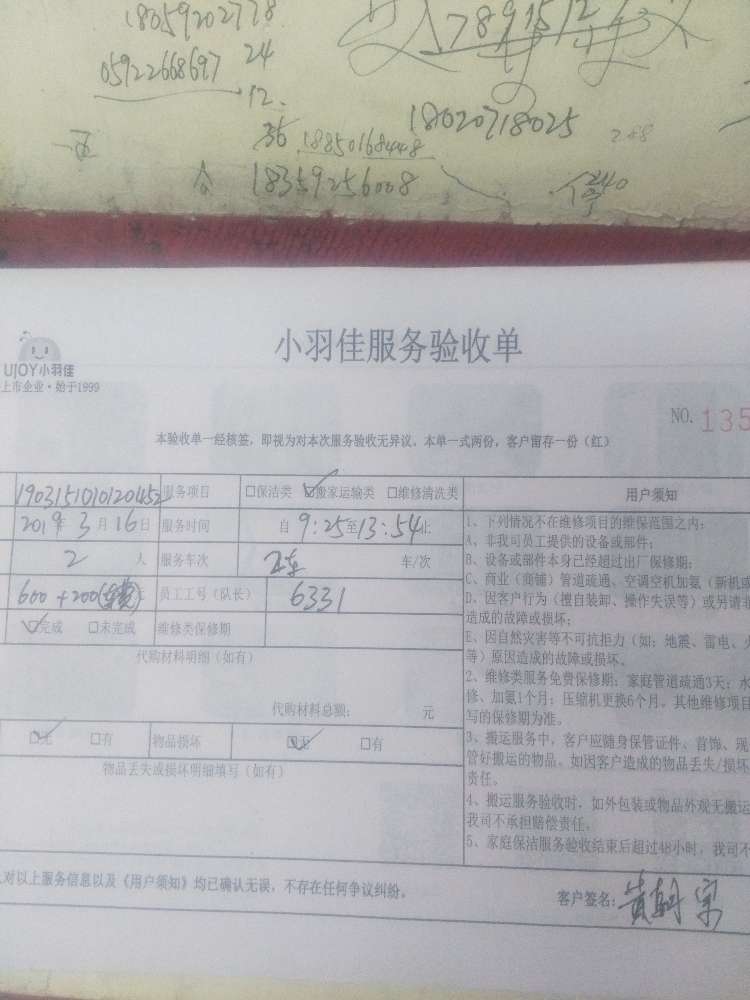 18059202778
7891512
05922668697 24
12.
18020718025 248
36 18850168448
合 18359256008
240
UJOY小羽佳
上市企业·始于1999
小羽佳服务验收单
NO. 135
本验收单一经核签，即视为对本次服务验收无异议。本单一式两份，客户留存一份（红）
1903151010120452 服务项目 □保洁类 ☑搬家运输类 □维修清洗类
2019年3月16日 服务时间 自 9:25至13:54止
2 人 服务车次 车/次
600+200 员工工号（队长） 6331
☑完成 □未完成 维修类保修期
代购材料明细（如有）
代购材料总额： 元
☑无 □有 物品损坏 ☑无 □有
物品丢失或损坏明细填写（如有）
用户须知
1、下列情况不在维修项目的维保范围之内：
A、非我司员工提供的设备或部件；
B、设备或部件本身已经超过出厂保修期；
C、商业（商铺）管道疏通、空调空机加氨（新机或
D、因客户行为（擅自装卸、操作失误等）或另请非
造成的故障或损坏；
E、因自然灾害等不可抗拒力（如：地震、雷电、火
等）原因造成的故障或损坏。
2、维修类服务免费保修期：家庭管道疏通3天；水
修、加氨1个月；压缩机更换6个月。其他维修项目
写的保修期为准。
3、搬运服务中，客户应随身保管证件、首饰、现
管好搬运的物品。如因客户造成的物品丢失/损坏
责任。
4、搬运服务验收时，如外包装或物品外观无搬运
我司不承担赔偿责任。
5、家庭保洁服务验收结束后超过48小时，我司不
对以上服务信息以及《用户须知》均已确认无误，不存在任何争议纠纷。
客户签名：黄 宗